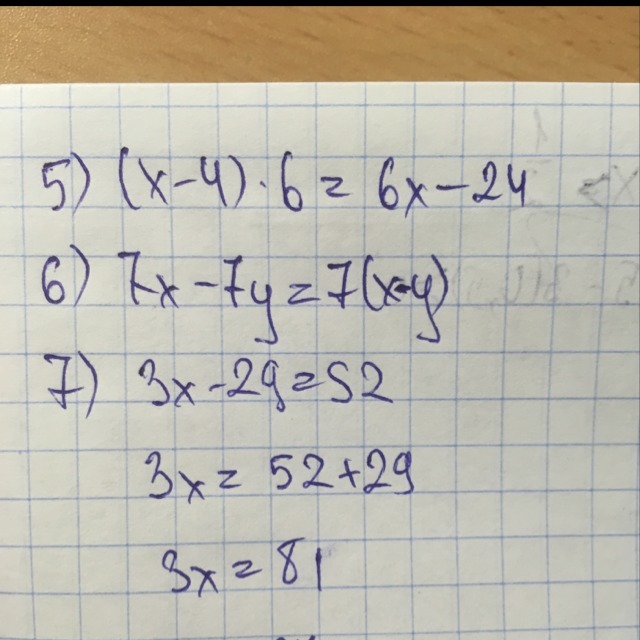 5) (x-4)·6=6x-24
6) 7x-7y=7(x-y)
7) 3x-29=52
3x=52+29
3x=81